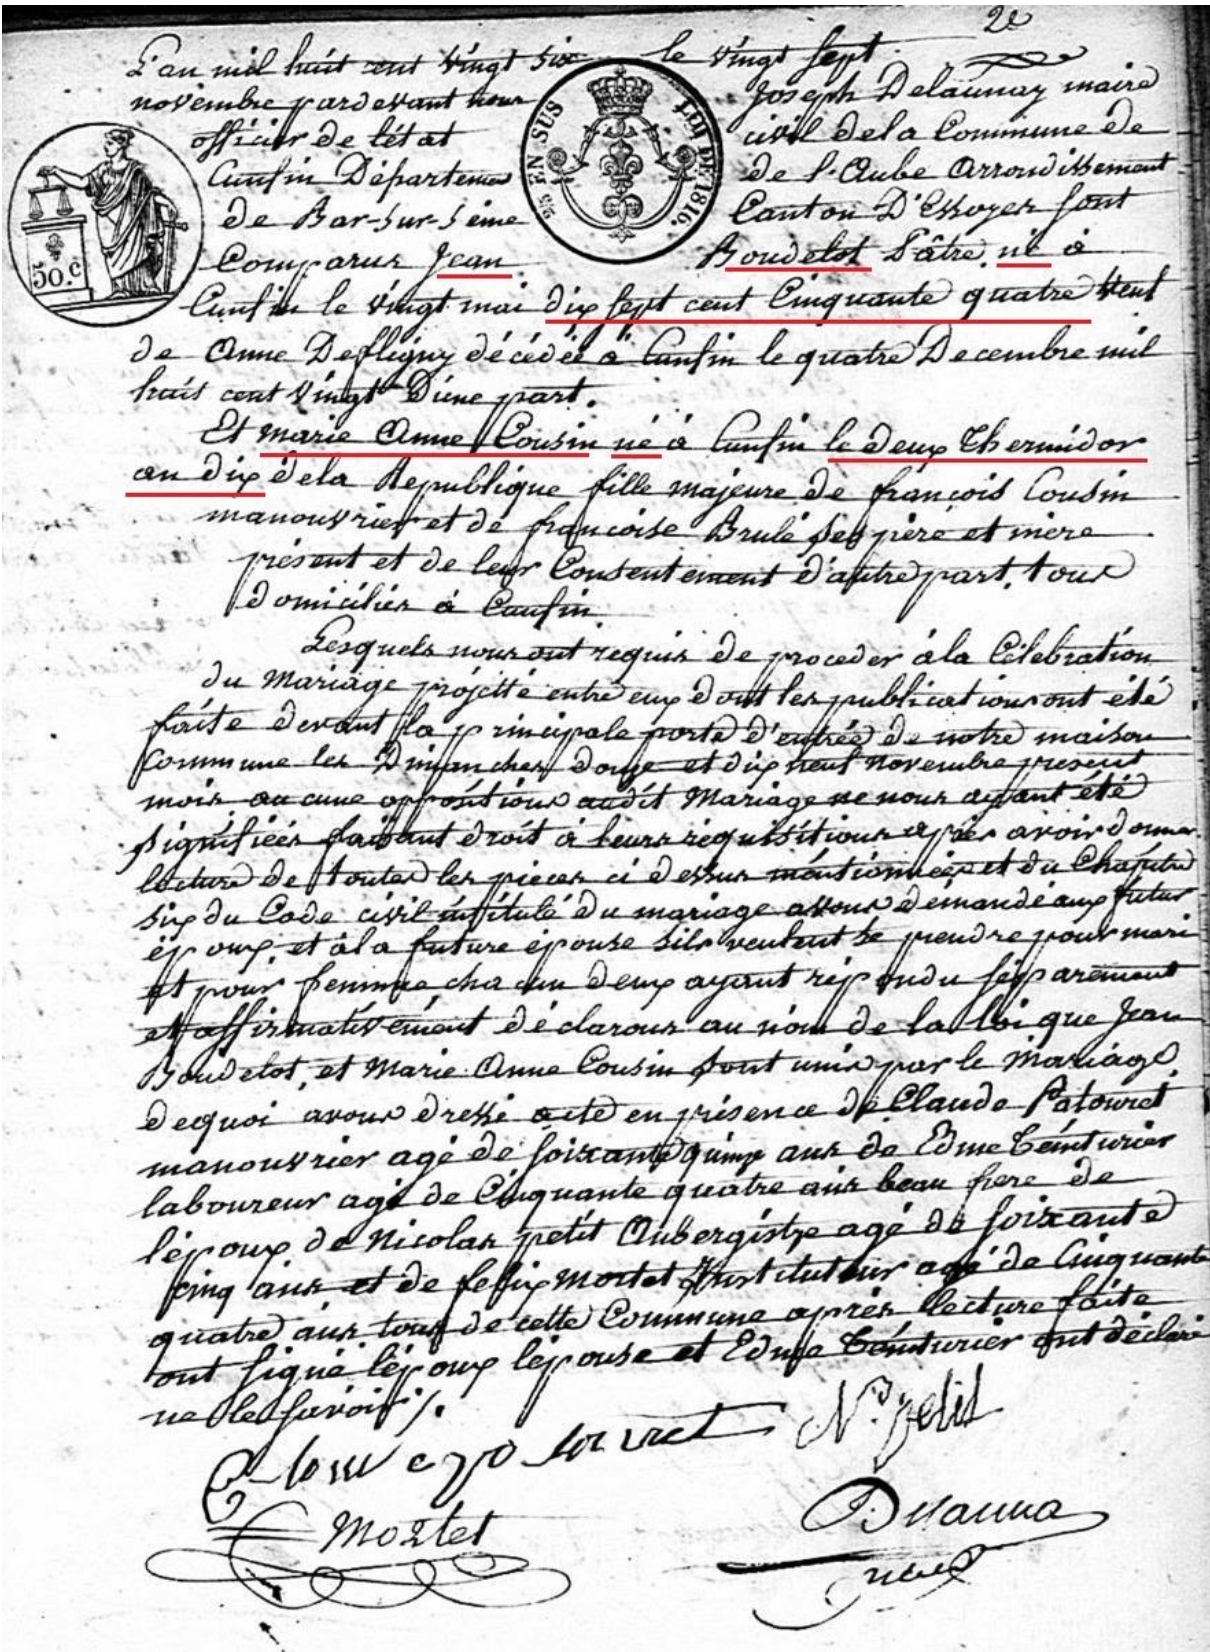 2e
L'an mil huit cent vingt six le vingt sept
novembre pardevant nous Joseph Delaunay maire
officier de l'état civil dela Commune de
Cunfin Département de l'Aube Arrondissement
de Bar-sur-Seine Canton D'Essoyes sont
Comparus Jean Boudelot Pâtre né à
Cunfin le vingt mai dix sept cent Cinquante quatre veuf
de Anne Defligny décédée à Cunfin le quatre Decembre mil
huit cent vingt D'une part.
Et marie Anne Cousin né à Cunfin le deux Thermidor
an dix dela Republique fille majeure de françois Cousin
manouvrier et de françoise Brulé ses père et mère
présent et de leur Consentement d'autre part, tous
domiciliés à Cunfin.
Lesquels nous ont requis de proceder à la Célébration
du Mariage projetté entre eux dont les publications ont été
faite devant la principale porte d'entrée de notre maison
Commune les Dimanches douze et dix neuf novembre present
mois aucune oppositions audit Mariage ne nous ayant été
signifiées faisant droit à leurs réquisitions après avoir donner
lecture de toutes les pièces ci dessus mentionnées et du Chapitre
six du Code civil intitulé du mariage avons demandé aux futur
époux, et à la future épouse sils veulent se prendre pour mari
et pour femme chacun deux ayant répondu séparement
et affirmativement déclarons au nom de la loi que Jean
Boudelot, et Marie Anne Cousin sont unis par le Mariage
dequoi avons dressé acte en présence de Claude Patouret
manouvrier agé de soixante quinze ans de Edme Teinturier
laboureur agé de Cinquante quatre ans beau frere de
l'époux de Nicolas petit Aubergiste agé de soixante
cinq ans et de felix Mortet Instituteur agé de Cinquante
quatre ans tous de cette Commune après lecture faite
ont signé l'époux l'épouse et Edme Teinturier ont déclaré
ne le savoir /.
Ns petit
Mortet
50.c
25 EN SUS